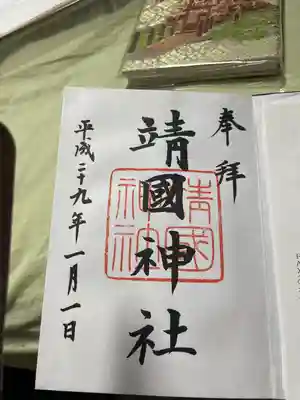 奉拝
靖國神社
靖國神社
平成二十九年一月一日